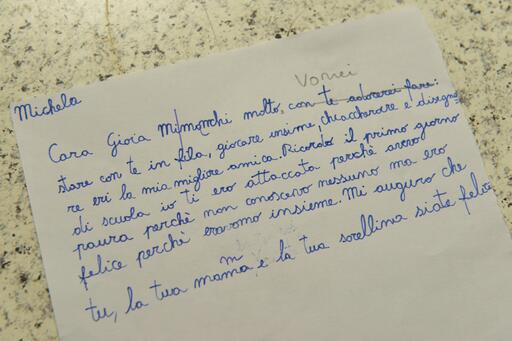 Michela
Vorrei
Cara Gioia Mi manchi molto, con te adorerei fare:
stare con te in fila, giocare insime, cheaccherare e disegna-
re eri la mia migliore amica. Ricordo il primo giorno
di scuola io ti ero attaccata perchè avevo
paura perchè non conoscevo nessuno ma ero
felice perchè eravamo insieme. Mi auguro che
tu, la tua mamma, e la tua sorellina siate felice